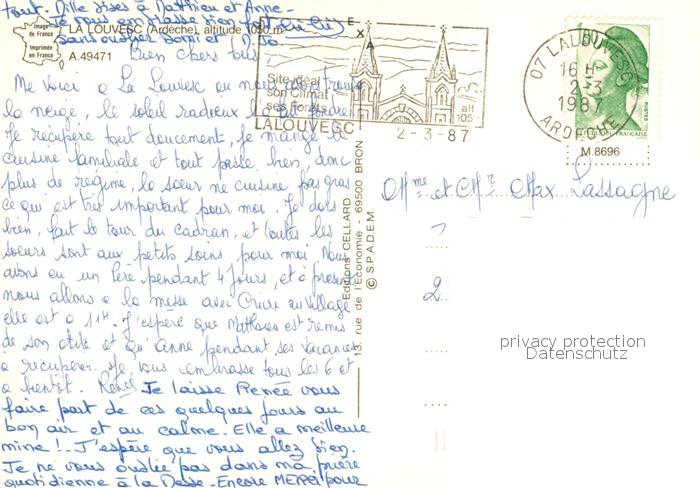 tout. Mille bises à Mathieu et Anne -
Je vous embrasse bien fort
sans oublier
Image de France
Imprimée en France
LA LOUVESC (Ardèche), altitude 1050 m
A.49471
Bien chers tous
Me voici à La Louvesc où nous avons trouvé
la neige, le soleil radieux la fait fondre.
Je récupère tout doucement, je mange la
cuisine familiale et tout passe bien, donc
plus de régime, la sœur ne cuisine pas gras
ce qui est très important pour moi. Je dors
bien, fait le tour du cadran, et toutes les
sœurs sont aux petits soins pour moi. Nous
avons eu un Père pendant 4 jours, et à présent
nous allons à la messe avec au village
elle est à 11H. J'espère que Mathieu est remis
de son otite et qu'Anne pendant ses vacances
a récupéré. Je vous embrasse tous les 6 et
à bientôt. Renée Je laisse Renée vous
faire part de ces quelques jours au
bon air et au calme. Elle a meilleure
mine ! - J'espère que vous allez bien.
Je ne vous oublie pas dans ma prière
quotidienne à la Messe - Encore MERCI pour
Site idéal
son Climat
ses Forêts
alt
105
LALOUVESC
2-3-87
07 LALOUVESC
16 H
2-3
1987
ARDECHE
POSTES
REPUBLIQUE FRANÇAISE
M.8696
Editions CELLARD
13, rue de l'Economie - 69500 BRON
© S.P.A.D.E.M.
Mme et Mr Max Lassagne
privacy protection
Datenschutz